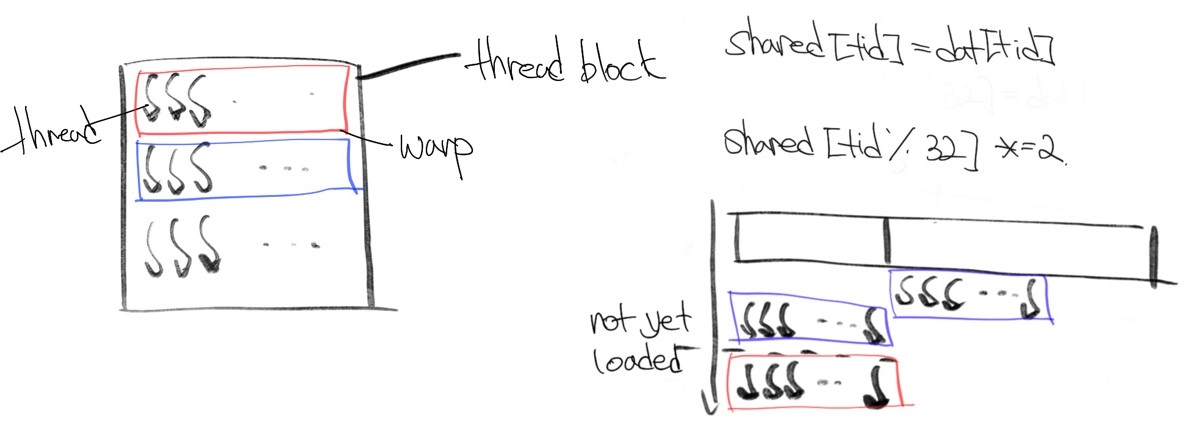 thread block
thread
warp
shared[tid] = dat[tid]
shared[tid % 32] *=2.
not yet
loaded